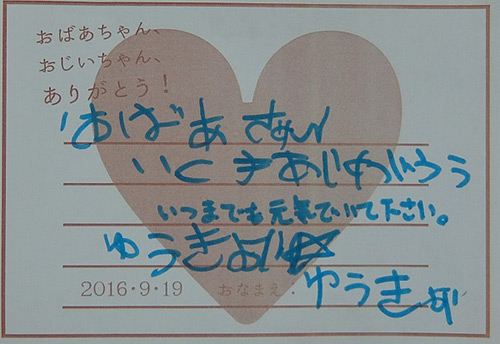 おばあちゃん、
おじいちゃん、
ありがとう!
おばあさん
いつまでも元気でいて下さい。
ゆうきより
2016・9・19
おなまえ:
ゆうき